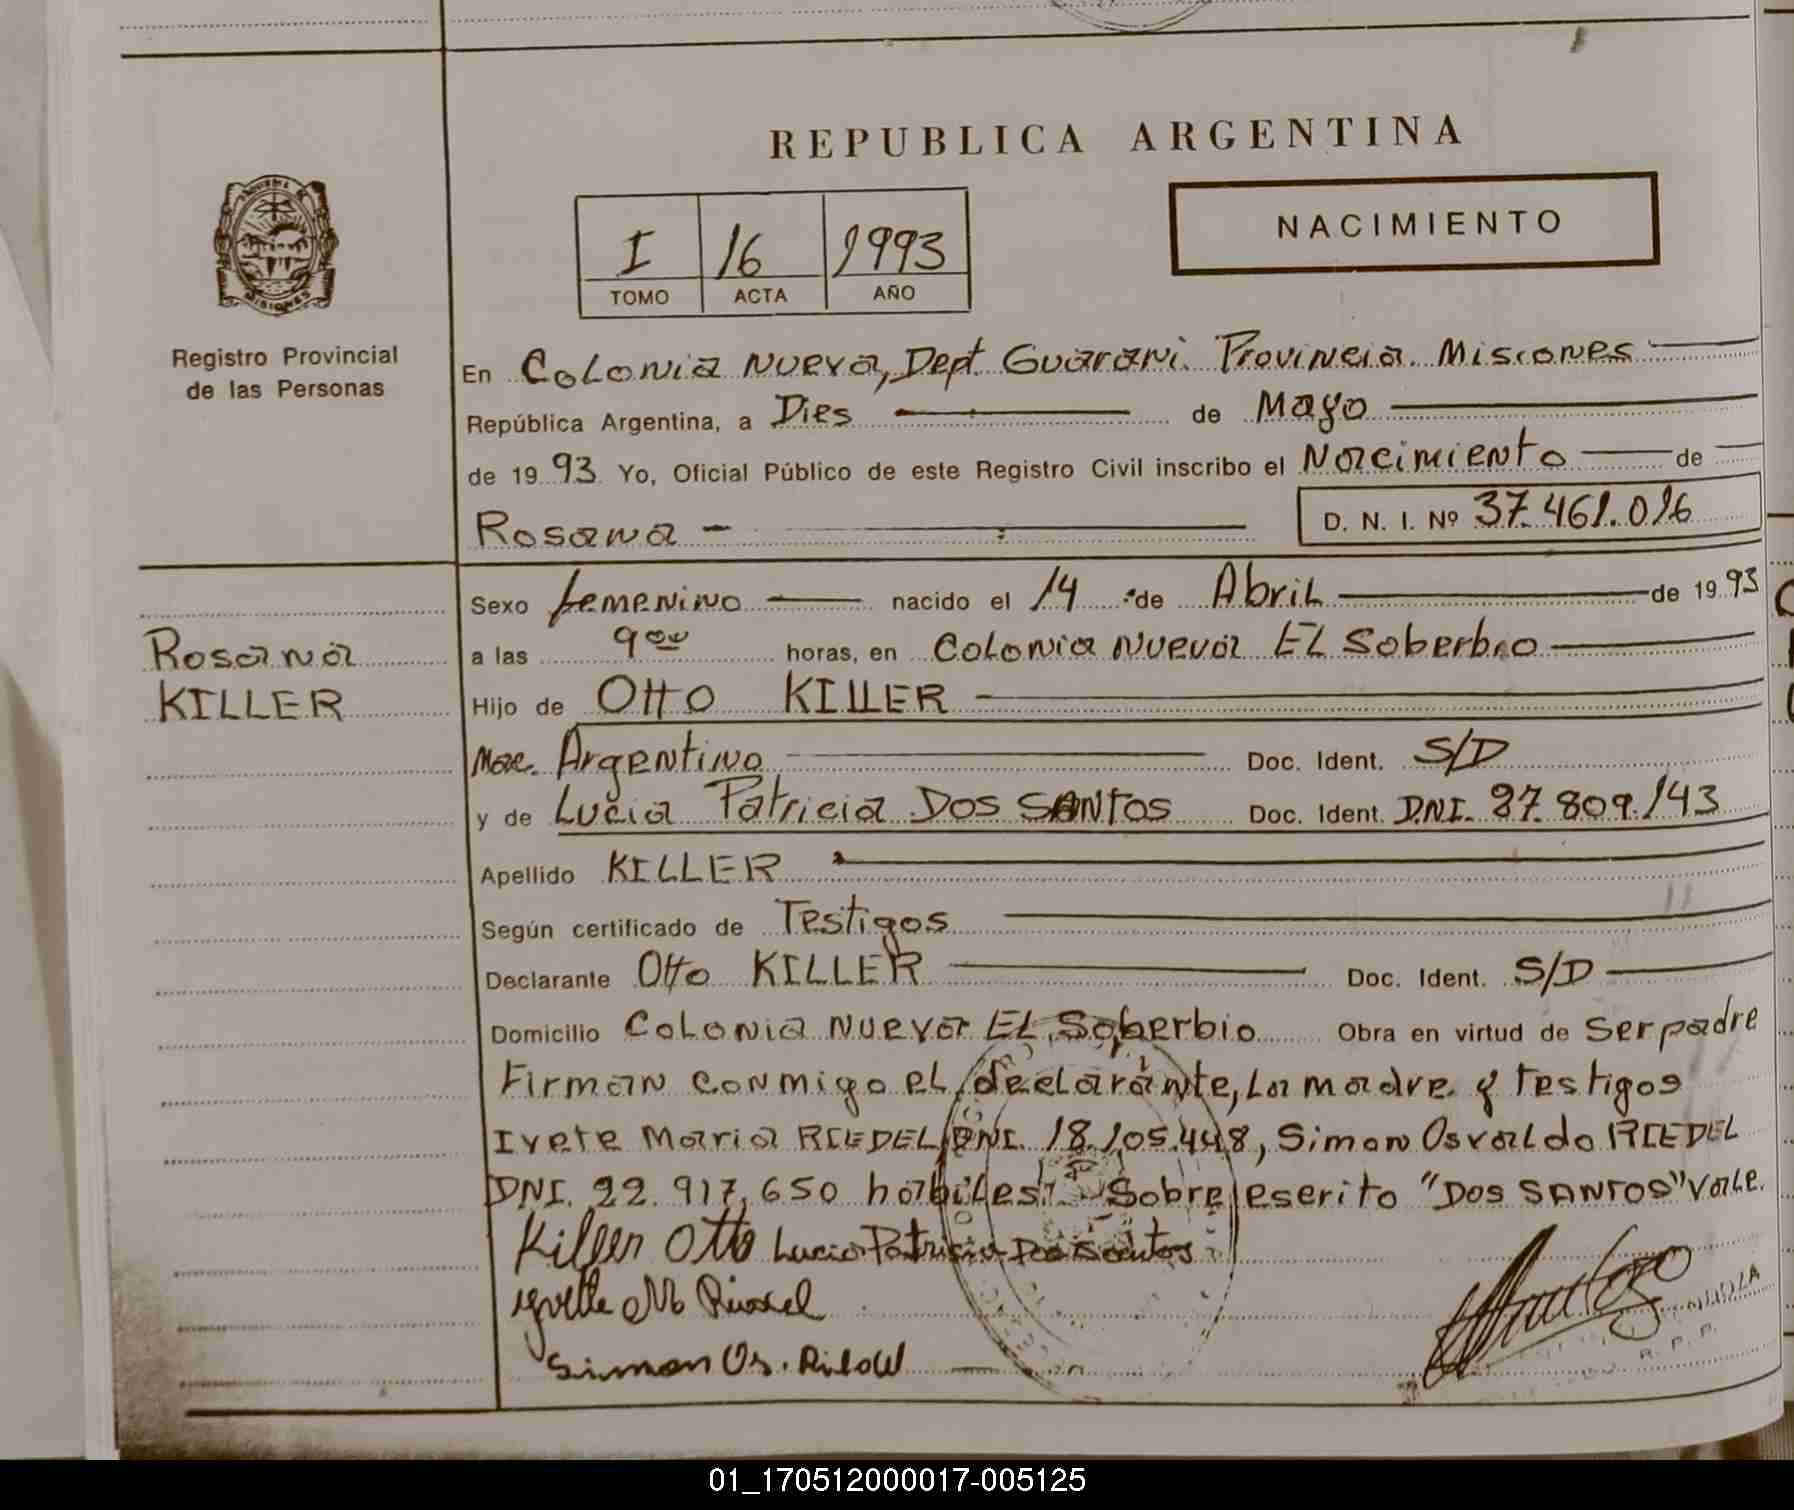 REPUBLICA ARGENTINA
NACIMIENTO
I 16 1993
TOMO ACTA AÑO
MISIONES
Registro Provincial
de las Personas
En Colonia Nueva, Dept. Guarani. Provincia Misiones
República Argentina, a Dies de Mayo
de 19 93 Yo, Oficial Público de este Registro Civil inscribo el Nacimiento de
Rosana - D. N. I. Nº 37.461.016
Rosana
KILLER
Sexo femenino nacido el 14 de Abril de 19 93
a las 9 00 horas, en Colonia Nueva EL Soberbio
Hijo de Otto KILLER
Nac. Argentino Doc. Ident. S/D
y de Lucia Patricia DOS SANTOS Doc. Ident. DNI. 27.809.143
Apellido KILLER
Según certificado de Testigos
Declarante Otto KILLER Doc. Ident. S/D
Domicilio Colonia Nueva EL Soberbio Obra en virtud de Ser padre
Firman conmigo el declarante, la madre y testigos
Ivete Maria RIEDEL, DNI. 18.105.448, Simon Osvaldo RIEDEL
DNI. 22.917,650 habiles. Sobre escrito "DOS SANTOS" Vale.
Killer Otto Lucia Patricia Dos Santos
Simon Os.
R. P. P.
01_170512000017-005125